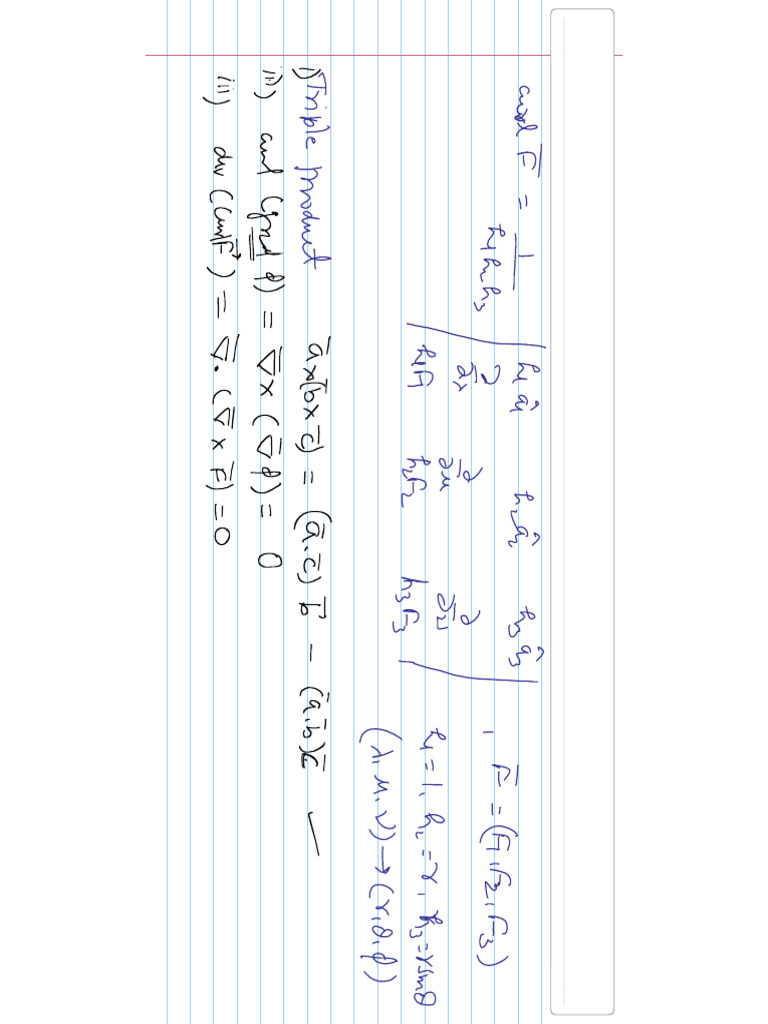 curl F̅ = 1/(h₁h₂h₃) | h₁â₁ h₂â₂ h₃â₃ | , F̅ = (F₁, F₂, F₃)
| ∂/∂λ ∂/∂μ ∂/∂ν |
| h₁F₁ h₂F₂ h₃F₃ | h₁ = 1, h₂ = r, h₃ = r sinθ
(λ, μ, ν) → (r, θ, φ)
i) Triple product a̅×(b̅×c̅) = (a̅.c̅) b̅ − (a̅.b̅)c̅
ii) curl (grad φ) = ∇̅ × (∇̅ φ) = 0
iii) div (curl F⃗) = ∇̅ . (∇̅ × F̅) = 0